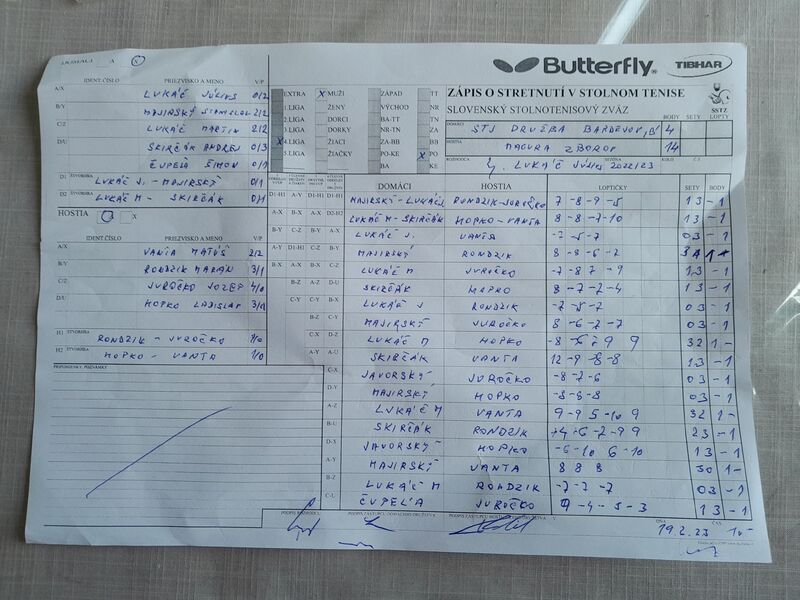 DOMÁCI A X
Butterfly
TIBHAR
IDENT.ČÍSLO PRIEZVISKO A MENO V/P
A/X LUKÁČ JÚLIUS 0/2
B/Y MAJIRSKÝ STANISLAV 2/2
C/Z LUKÁČ MARTIN 2/2
D/U SKIRČÁK ANDREJ 0/3
ČUPEĽA ŠIMON 0/1
D1 ŠTVORHRA LUKÁČ J. - MAJIRSKÝ 0/1
D2 ŠTVORHRA LUKÁČ M - SKIRČÁK 0/1
HOSTIA X
IDENT.ČÍSLO PRIEZVISKO A MENO V/P
A/X VANTA MATÚŠ 2/2
B/Y RONDZIK MARIÁN 3/1
C/Z JUROČKO JOZEF 4/0
D/U HOPKO LADISLAV 3/1
H1 ŠTVORHRA RONDZIK - JUROČKO 1/0
H2 ŠTVORHRA HOPKO - VANTA 1/0
PRIPOMIENKY, POZNÁMKY
EXTRA X MUŽI ZÁPAD TT
1.LIGA ŽENY VÝCHOD NR
2.LIGA DORCI BA-TT TN
3.LIGA DORKY NR-TN ZA
X 4.LIGA ŽIACI ZA-BB BB
5.LIGA ŽIAČKY PO-KE X PO
BA KE
ZÁPIS O STRETNUTÍ V STOLNOM TENISE
SLOVENSKÝ STOLNOTENISOVÝ ZVÄZ
SSTZ
BODY SETY LOPTY
DOMÁCI STJ DRUŽBA BARDEJOV "B" 4
HOSTIA MAGURA ZBOROV 14
ROZHODCA LUKÁČ JÚLIUS 2022/23
DOMÁCI HOSTIA LOPTIČKY SETY BODY
D1-H1 MAJIRSKÝ-LUKÁČ J RONDZIK-JUROČKO 7 -8 -9 -5 13 -1
D2-H2 LUKÁČ M - SKIRČÁK HOPKO-VANTA 8 -8 -7 -10 13 -1
A-X LUKÁČ J. VANTA -2 -5 -7 03 -1
B-Y MAJIRSKÝ RONDZIK 8 -8 -6 -2
C-Z LUKÁČ M JUROČKO -7 -8 7 -9 13 -1
D-U SKIRČÁK HOPKO 8 -7 -2 -4 13 -1
LUKÁČ J RONDZIK -7 -5 -7 03 -1
MAJIRSKÝ JUROČKO -8 -6 -2 -7 03 -1
LUKÁČ M HOPKO -8 9 9 32 1-
A-U SKIRČÁK VANTA 12 -9 -8 -8 13 -1
C-X JAVORSKÝ JUROČKO -8 -7 -6 03 -1
D-Y MAJIRSKÝ HOPKO -8 -8 -8 03 -1
A-Z LUKÁČ M VANTA 9 -9 5 -10 9 32 1-
B-U SKIRČÁK RONDZIK -6 -2 -9 9 23 -1
D-X JAVORSKÝ HOPKO -6 -10 6 -10 13 -1
A-Y MAJIRSKÝ VANTA 8 8 8 30 1-
B-Z LUKÁČ M RONDZIK -7 -7 -7 03 -1
C-U ČUPEĽA JUROČKO 9 -4 -5 -3 13 -1
PODPIS ROZHODCU
DŇA 19.2.23 ČAS 10-